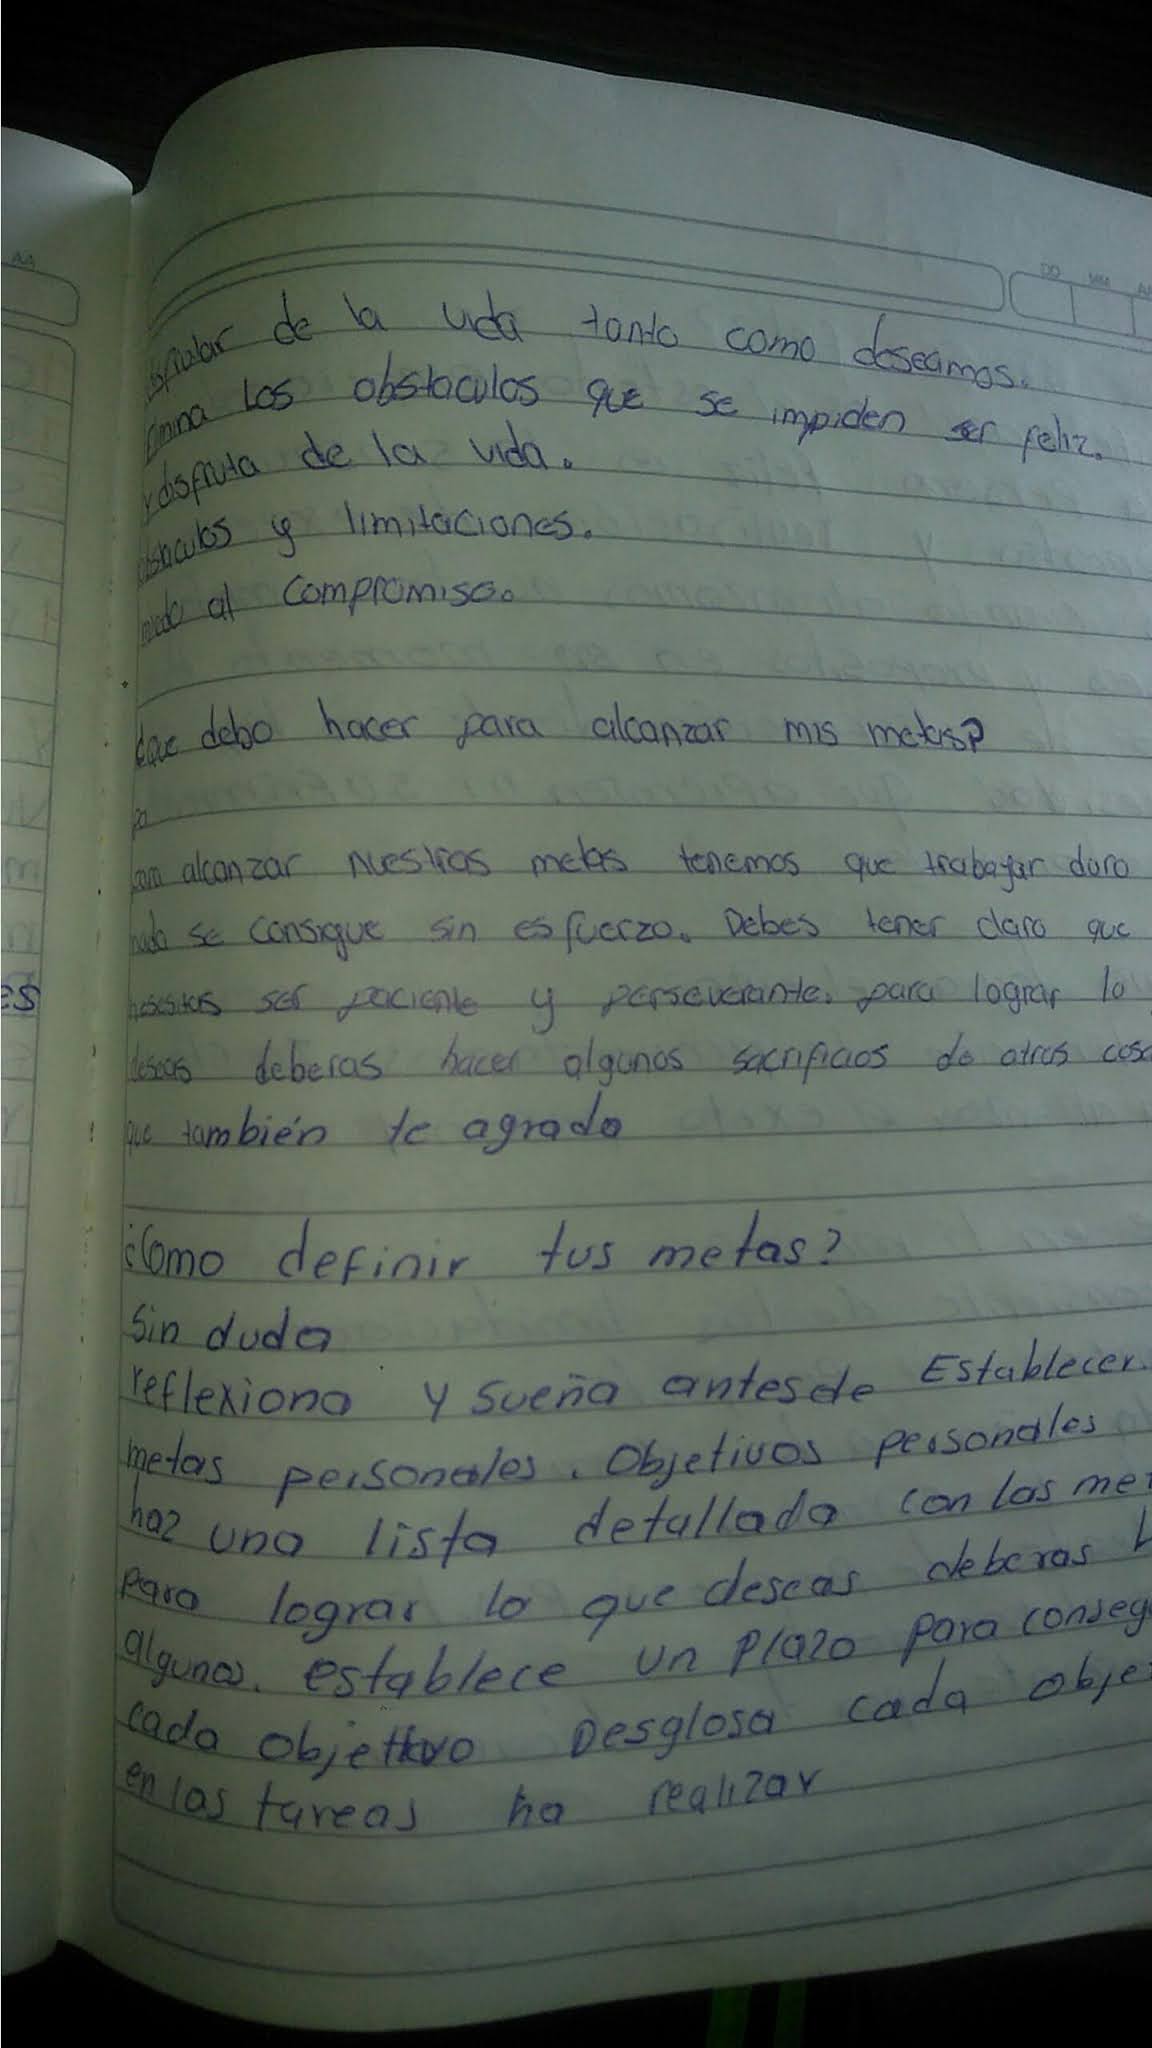 AA
DD MM AA
disfrutar de la vida tanto como deseamos.
Elimina Los obstaculos que se impiden ser feliz.
y disfruta de la vida.
obstaculos y limitaciones.
miedo al compromiso.
¿que debo hacer para alcanzar mis metas?
pa
para alcanzar nuestras metas tenemos que trabajar duro
nada se consigue sin esfuerzo. Debes tener claro que
nesesitas ser paciente y perseverante. para lograr lo
deseas deberas hacer algunos sacrificios de otras cosa
que también te agrada
es
¿Como definir tus metas?
Sin duda
reflexiona y sueña antes de Establecer
metas personales. Objetivos personales
haz una lista detallada con las me
para lograr lo que deseas deberas h
algunos. establece un plazo para conseg
cada objetivo Desglosa cada obje
en las tareas ha realizar